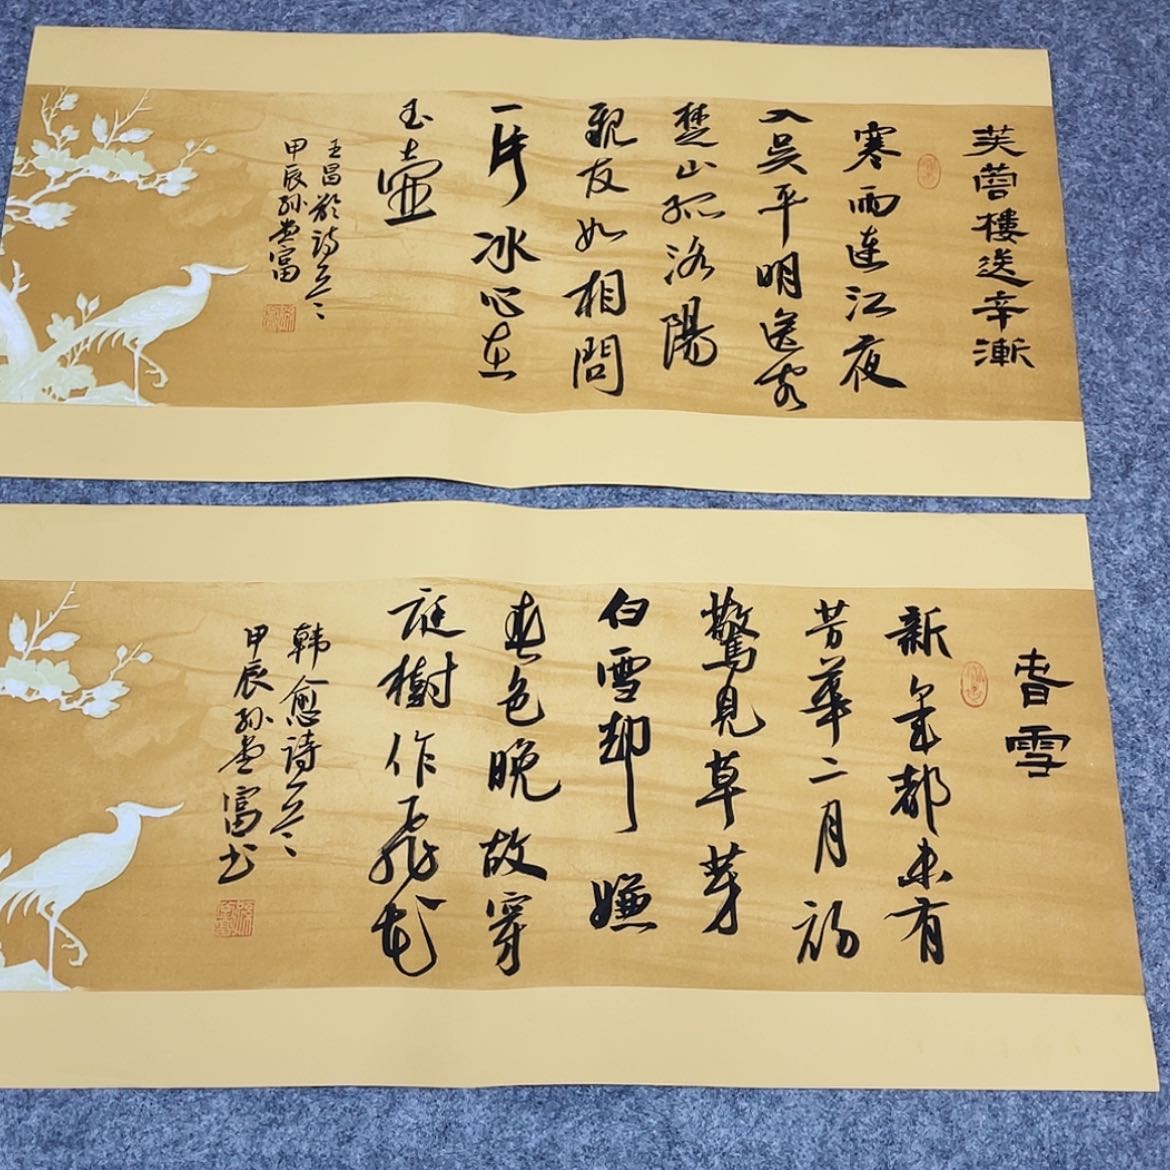 芙蓉樓送辛漸
寒雨连江夜
入吴平明送客
楚山孤洛陽
親友如相問
一片冰心在
玉壶
王昌龄詩一首
甲辰孙
富
春雪
新年都未有
芳華二月初
驚見草芽
白雪却嫌
春色晚故穿
庭樹作飛花
韩愈詩一首
甲辰孙
富书